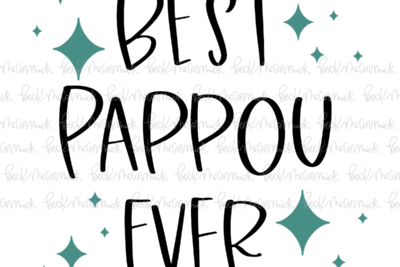 BEST
PAPPOU
EVER